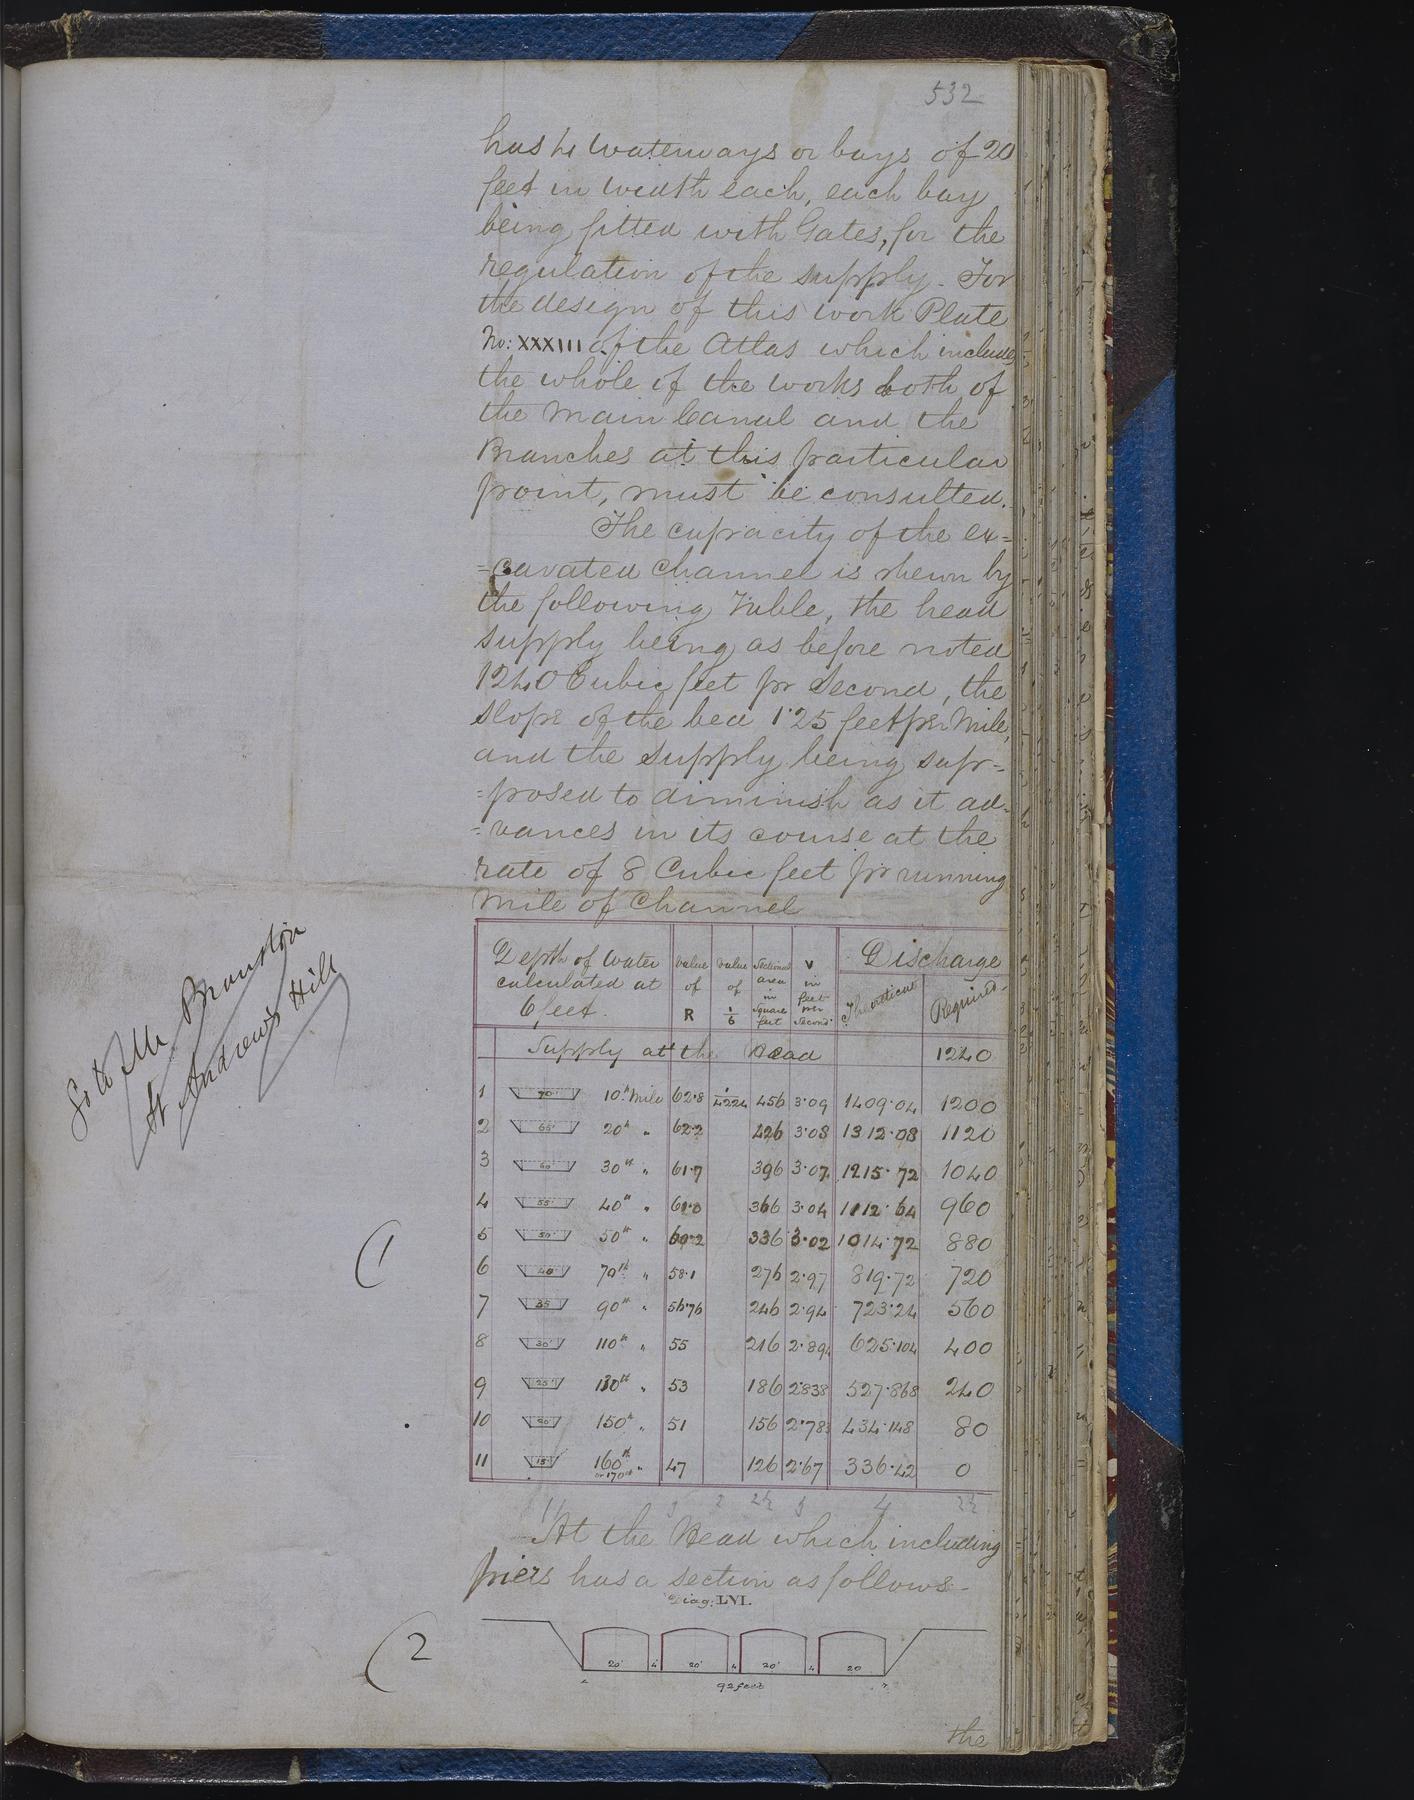 532
has 4 Waterways or bays of 20
feet in width each, each bay
being fitted with Gates, for the
regulation of the supply. For
the design of this work Plate
No: XXXIII of the Atlas which includes
the whole of the works both of
the Main Canal and the
Branches at this particular
point, must be consulted.
The capacity of the ex=
=cavated Channel is shewn by
the following Table, the head
supply being as before noted
1240 Cubic feet pr Second, the
slope of the bed 1.25 feet per Mile,
and the supply being sup=
=posed to diminish as it ad=
=vances in its course at the
rate of 8 Cubic feet pr running
Mile of Channel
Depth of Water calculated at 6 feet. | Value of R | Value of 1/6 | Sectional area in Square feet | V in feet per Second | Discharge Theoretical | Required
Supply at the Head 1240
1 70' 10th Mile 62.8 1/4224 456 3.09 1409.04 1200
2 65' 20th " 62.2 426 3.08 1312.08 1120
3 60' 30th " 61.7 396 3.07 1215.72 1040
4 55' 40th " 61.0 366 3.04 1112.64 960
5 50' 50th " 60.2 336 3.02 1014.72 880
6 40' 70th " 58.1 276 2.97 819.72 720
7 35' 90th " 56.76 246 2.94 723.24 560
8 30' 110th " 55 216 2.894 625.104 400
9 25' 130th " 53 186 2.838 527.868 240
10 20' 150th " 51 156 2.783 434.148 80
11 15' 160th or 170th " 47 126 2.67 336.42 0
11 3 2 2½ 3 4 2½
At the Head which including
piers has a section as follows.
Diag: LVI.
20' 4 20' 4 20' 4 20
92 feet
the
Go to Mr Branston
St Andrews Hill
(1
(2